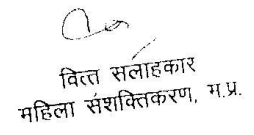 वित्त सलाहकार
महिला संशक्तिकरण, म.प्र.